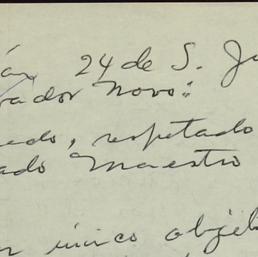 án, 24 de S. Ju
vador Novo:
edo, respetado
ado Maestro
n único objet